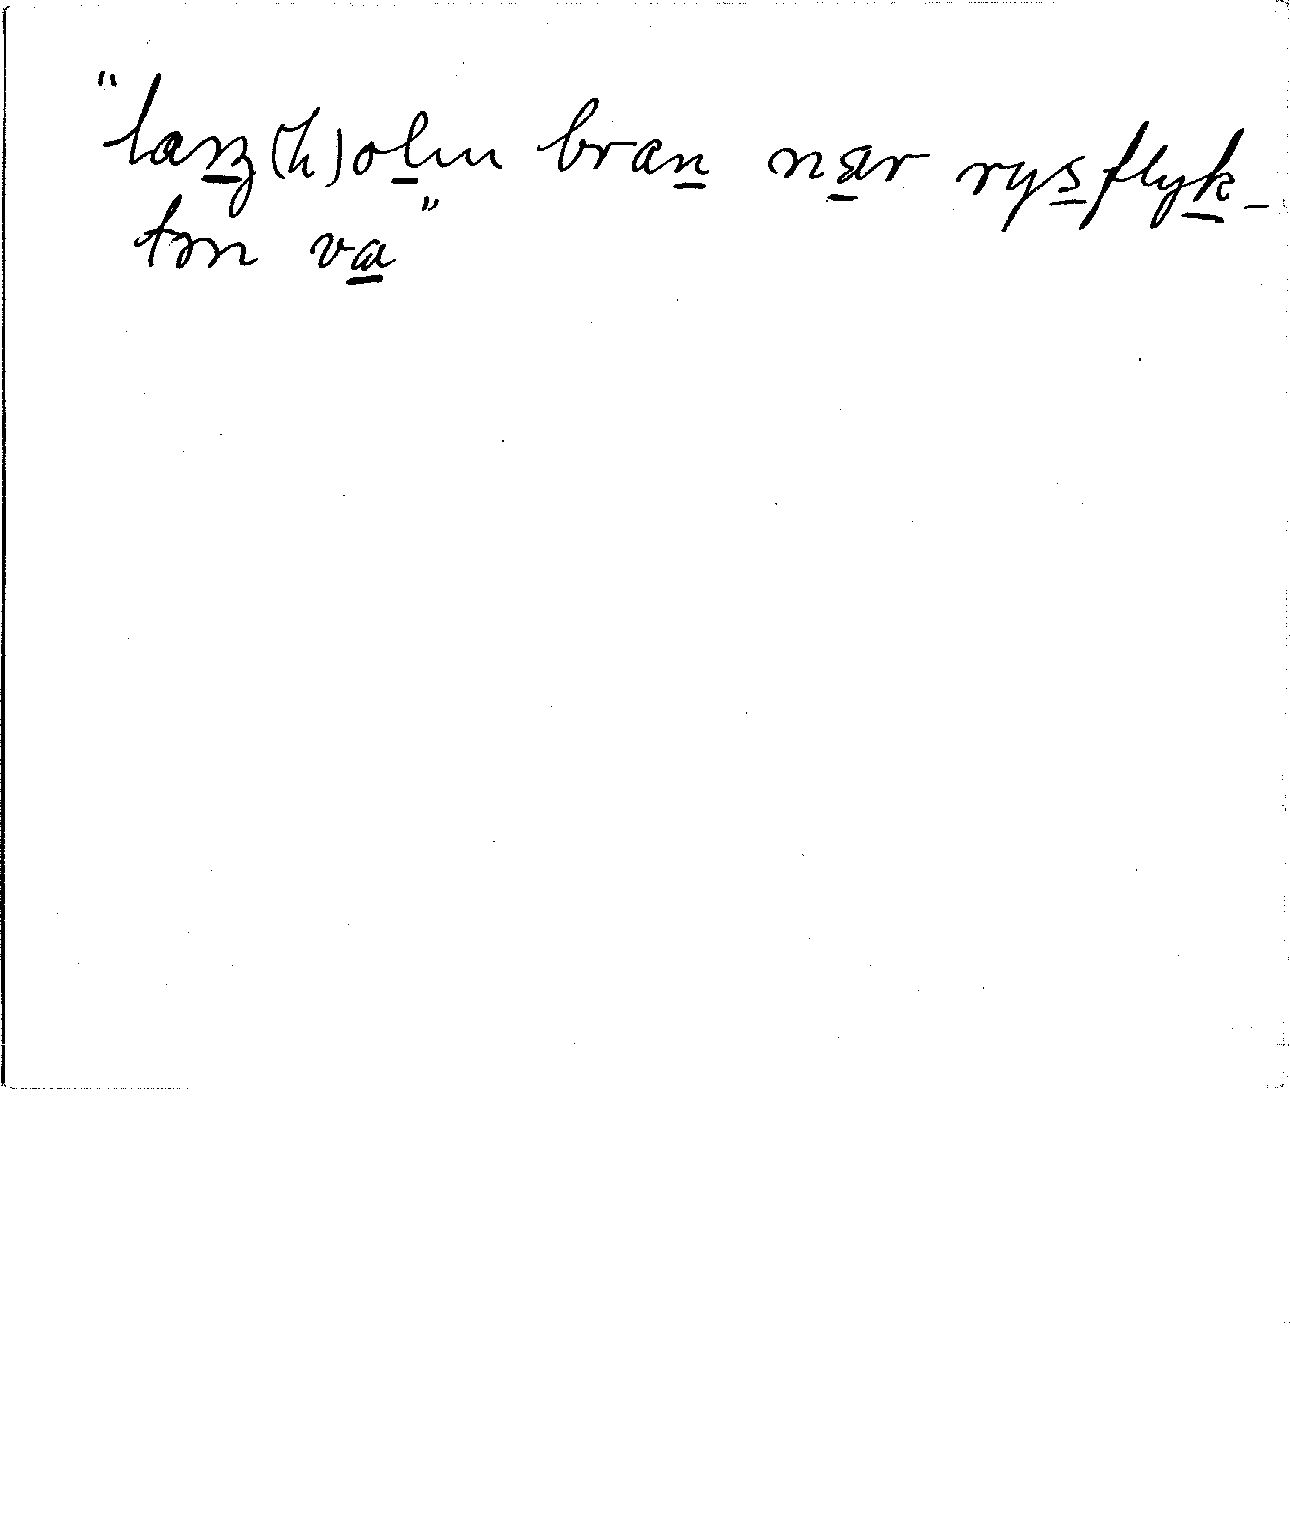 "larz(h)olm bran nær rysflyk-
ton va"